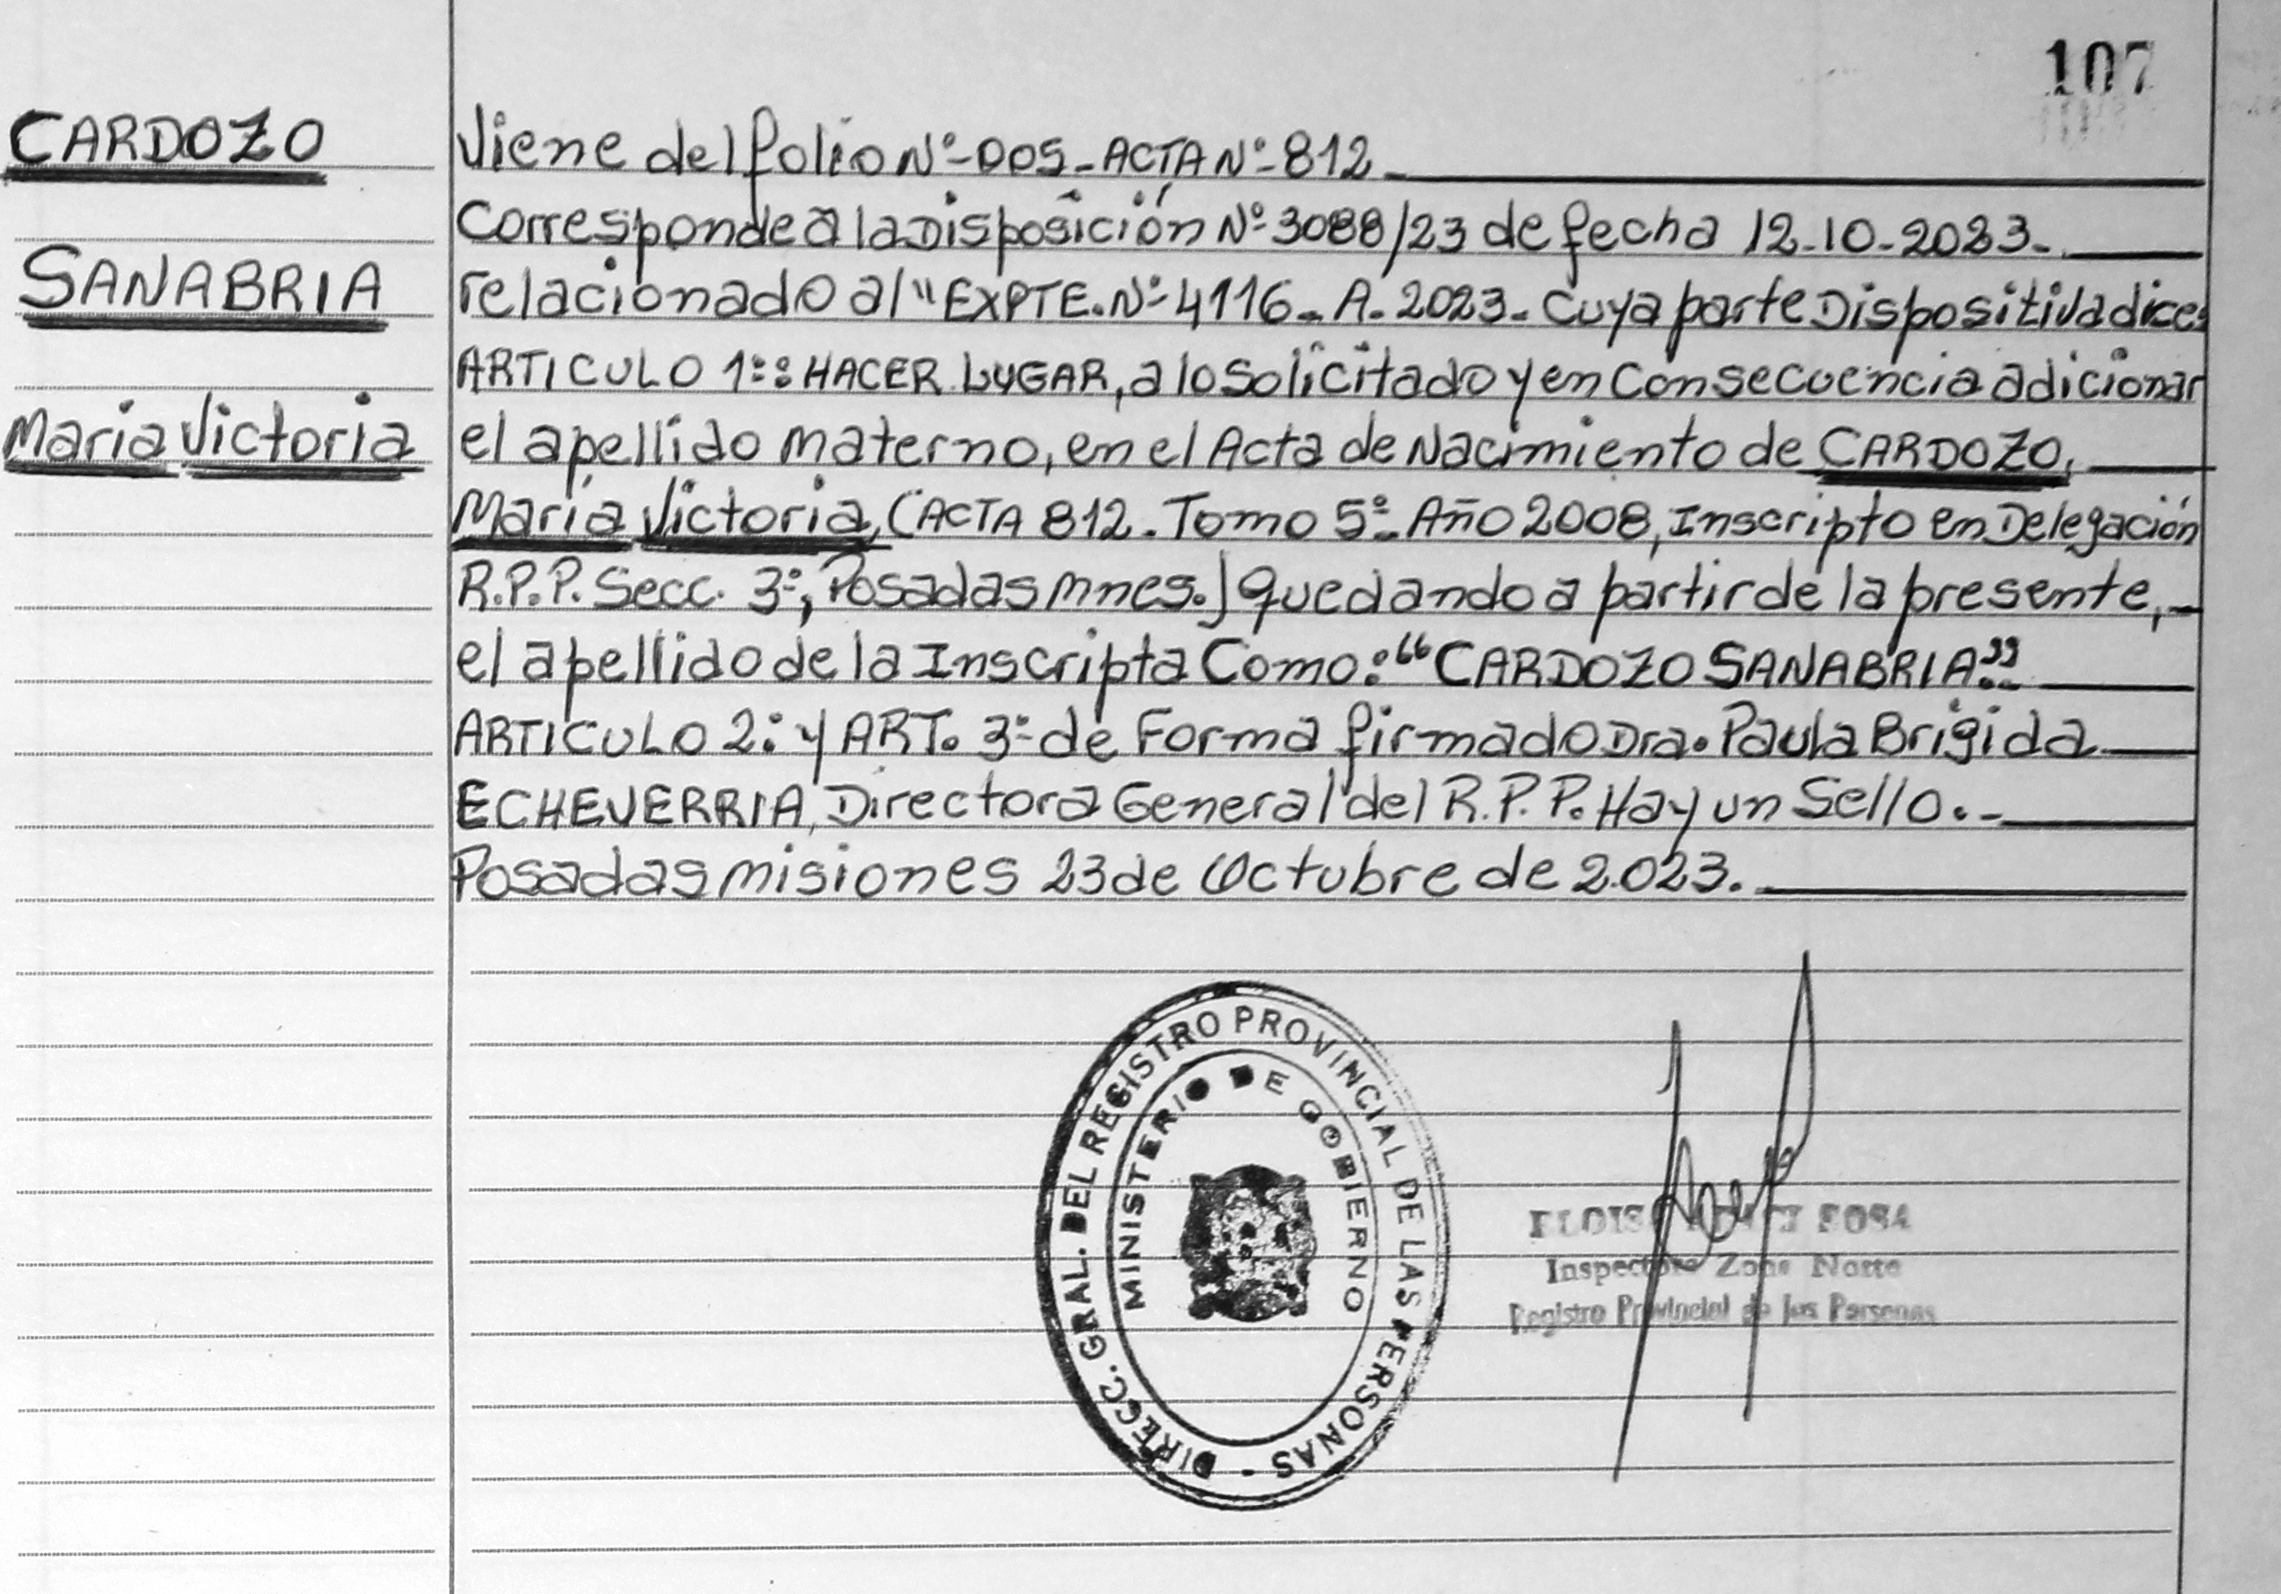 107
CARDOZO
SANABRIA
Maria Victoria
Viene del folio Nº-DOS-ACTA Nº-812-
Corresponde a la Disposición Nº-3088/23 de fecha 12-10-2023-
relacionado al "EXPTE. Nº-4116-A-2023- Cuya parte Dispositiva dice:
ARTICULO 1º: HACER LUGAR, a lo solicitado y en consecuencia adicionar
el apellido materno, en el Acta de Nacimiento de CARDOZO,
María Victoria, (ACTA 812- Tomo 5º- Año 2008, Inscripto en Delegación
R.P.P. Secc. 3º, Posadas Mnes.) quedando a partir de la presente,-
el apellido de la Inscripta Como: "CARDOZO SANABRIA".-
ARTICULO 2º y ART. 3º de Forma firmado Dra. Paula Brigida
ECHEVERRIA, Directora General del R.P.P. Hay un Sello.-
Posadas misiones 23 de Octubre de 2023.
DIRECC. GRAL. DEL REGISTRO PROVINCIAL DE LAS PERSONAS -
MINISTERIO DE GOBIERNO
SOSA
Inspectora Zona Norte
Registro Provincial de las Personas